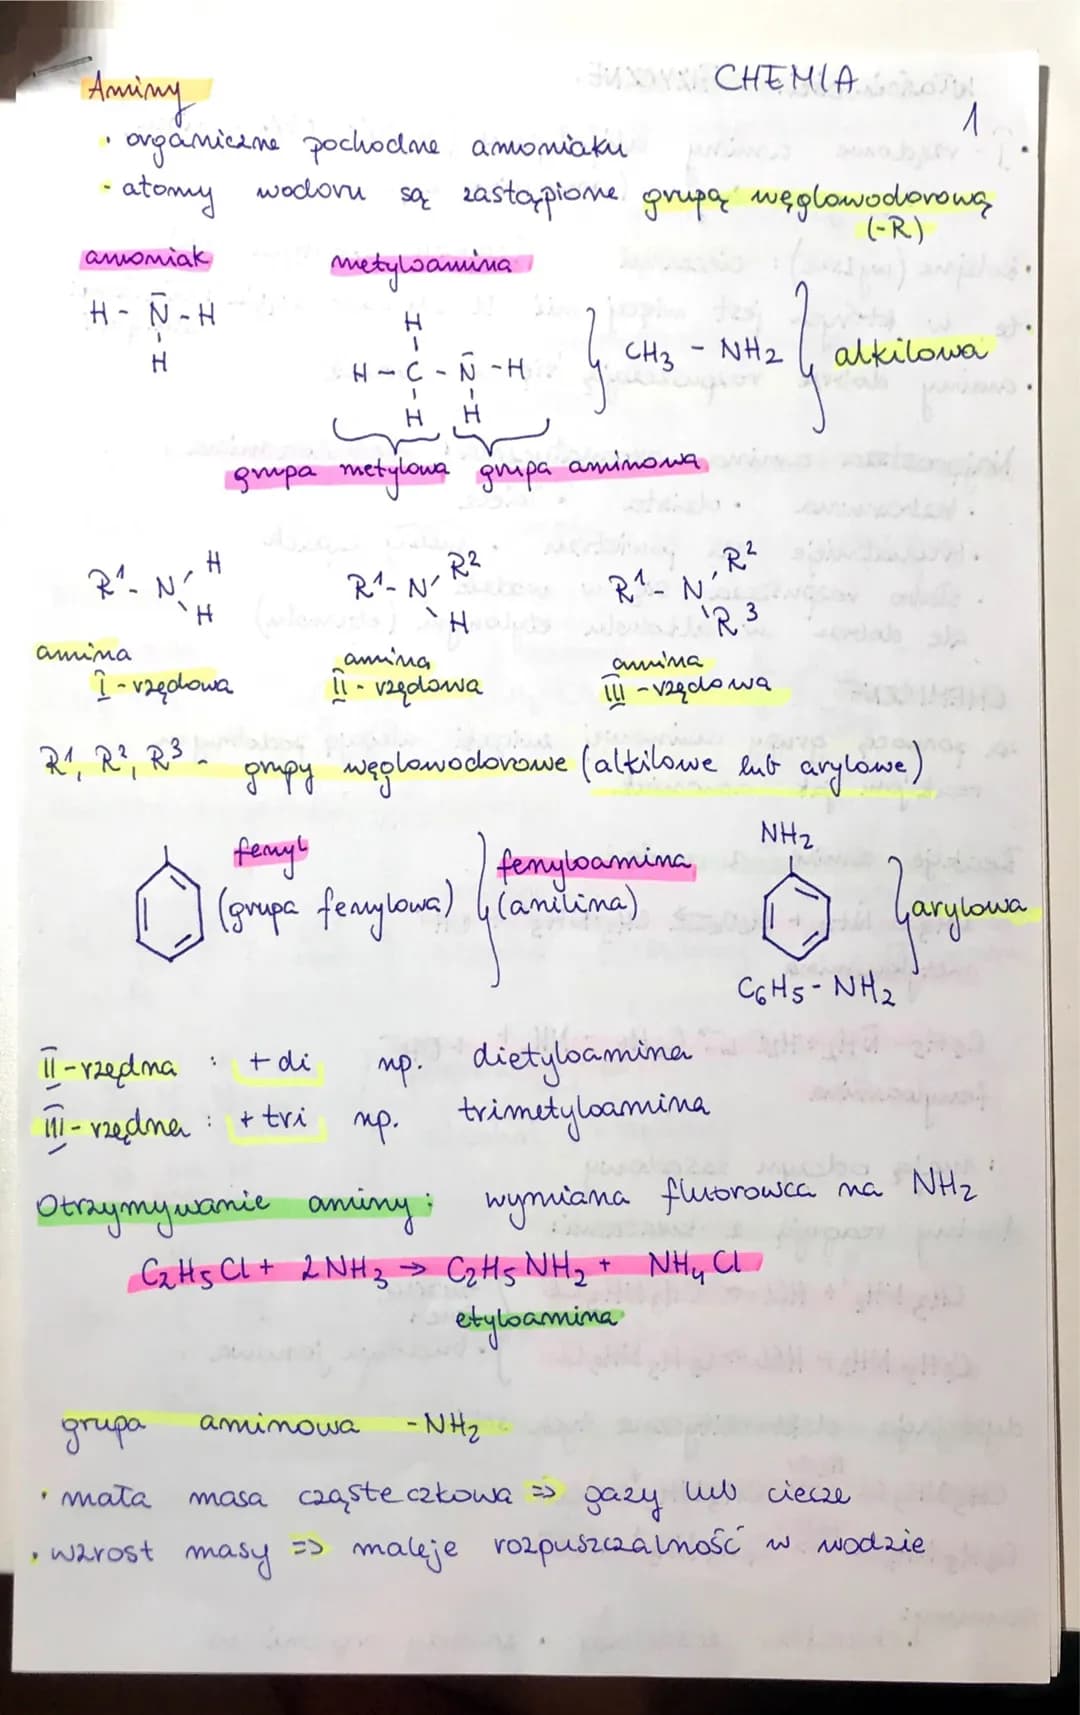 CHEMIA
1
Aminy
• organiczne pochodne amoniaku
- atomy wodoru są zastąpione grupą węglowodorową
(-R)
amoniak metyloamina
H - N - H
H
H
H - C - N - H
H H
CH3 - NH2 alkilowa
grupa metylowa grupa aminowa
R1 - N H
H
R1 - N R2
H
R1 - N R2
R3
amina I-rzędowa
amina II-rzędowa
amina III-rzędowa
R1, R2, R3 - grupy węglowodorowe (alkilowe lub arylowe)
fenyl
(grupa fenylowa)
fenyloamina
(anilina)
NH2
arylowa
C6H5 - NH2
II-rzędna : + di np. dietyloamina
III-rzędna : + tri np. trimetyloamina
Otrzymywanie aminy: wymiana fluorowca na NH2
C2H5Cl + 2NH3 → C2H5NH2 + NH4Cl
etyloamina
grupa aminowa -NH2
• mała masa cząsteczkowa => gazy lub ciecze
• wzrost masy => maleje rozpuszczalność w wodzie